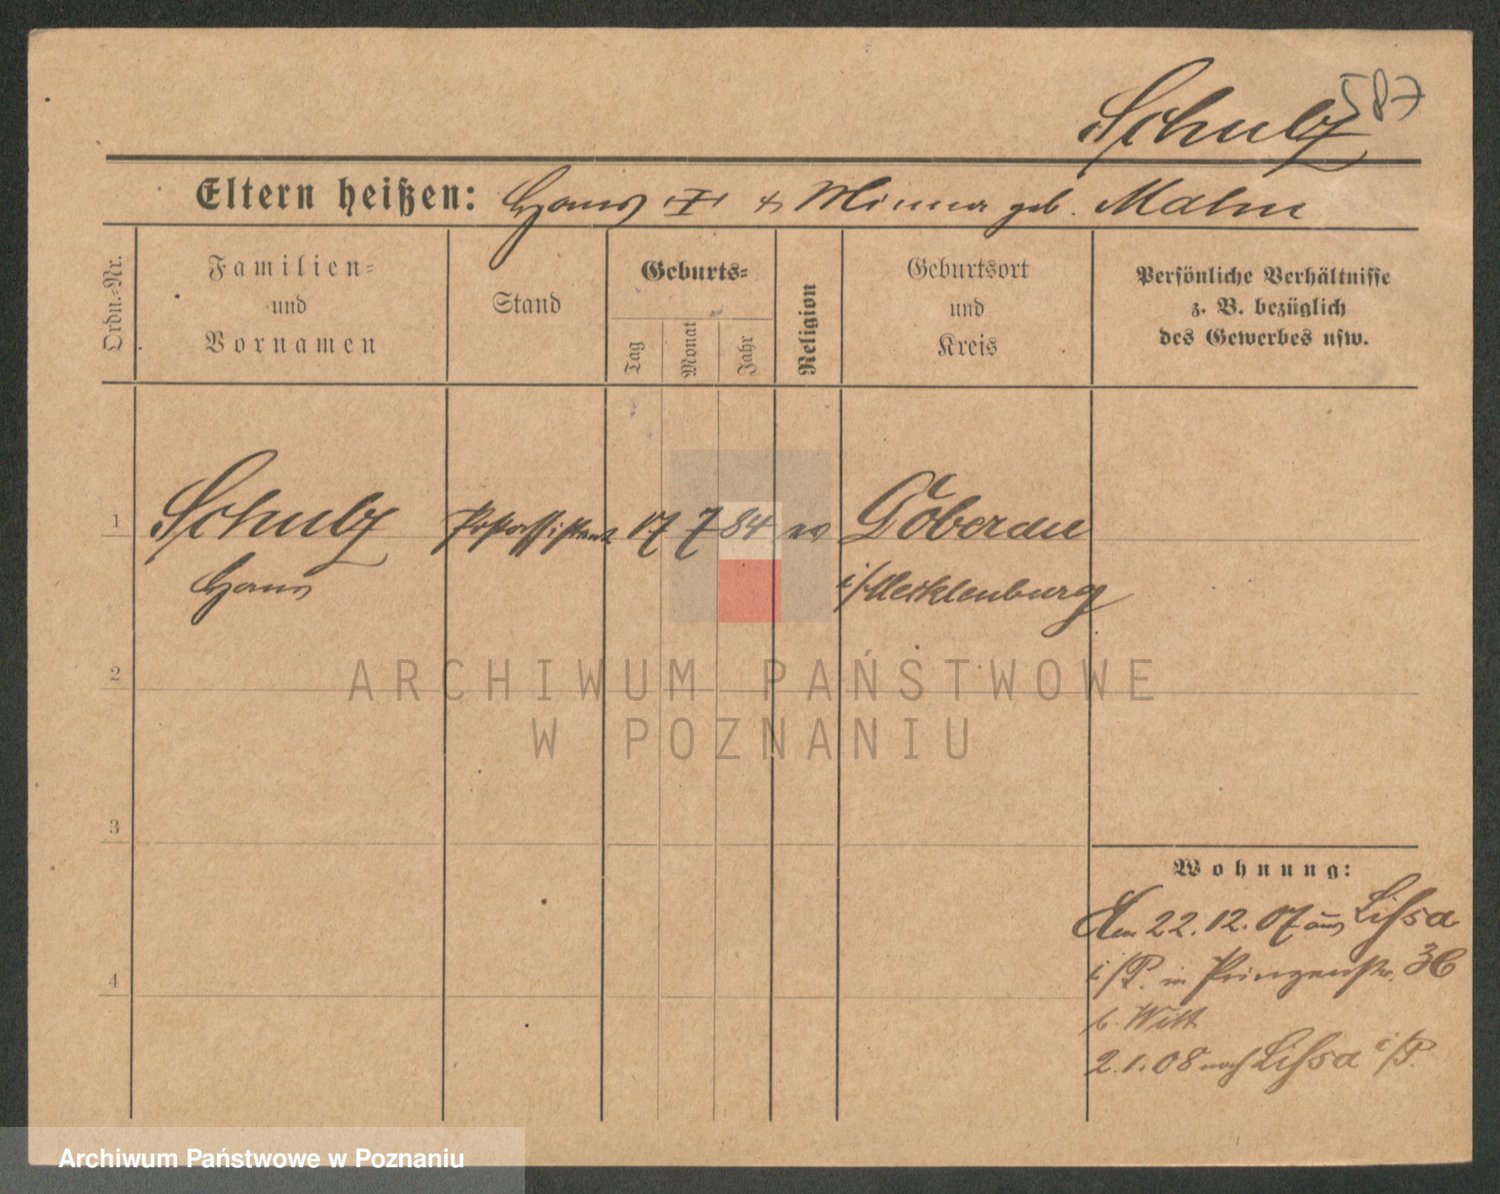 587
Schulz
Eltern heißen: Hans u. Minna geb. Malm
Ordn.-Nr.
Familien-
und
Vornamen
Stand
Geburts-
Tag
Monat
Jahr
Religion
Geburtsort
und
Kreis
Persönliche Verhältnisse
z. B. bezüglich
des Gewerbes usw.
1 Schulz Postassistent 17 7 84 ev Doberau
Hans i/Mecklenburg
2
ARCHIWUM PAŃSTWOWE
W POZNANIU
3
Wohnung:
Am 22.12.07 aus Lissa
i/P. in Prinzenstr. 36
b. Witt
4
2.1.08 nach Lissa i/P.
Archiwum Państwowe w Poznaniu